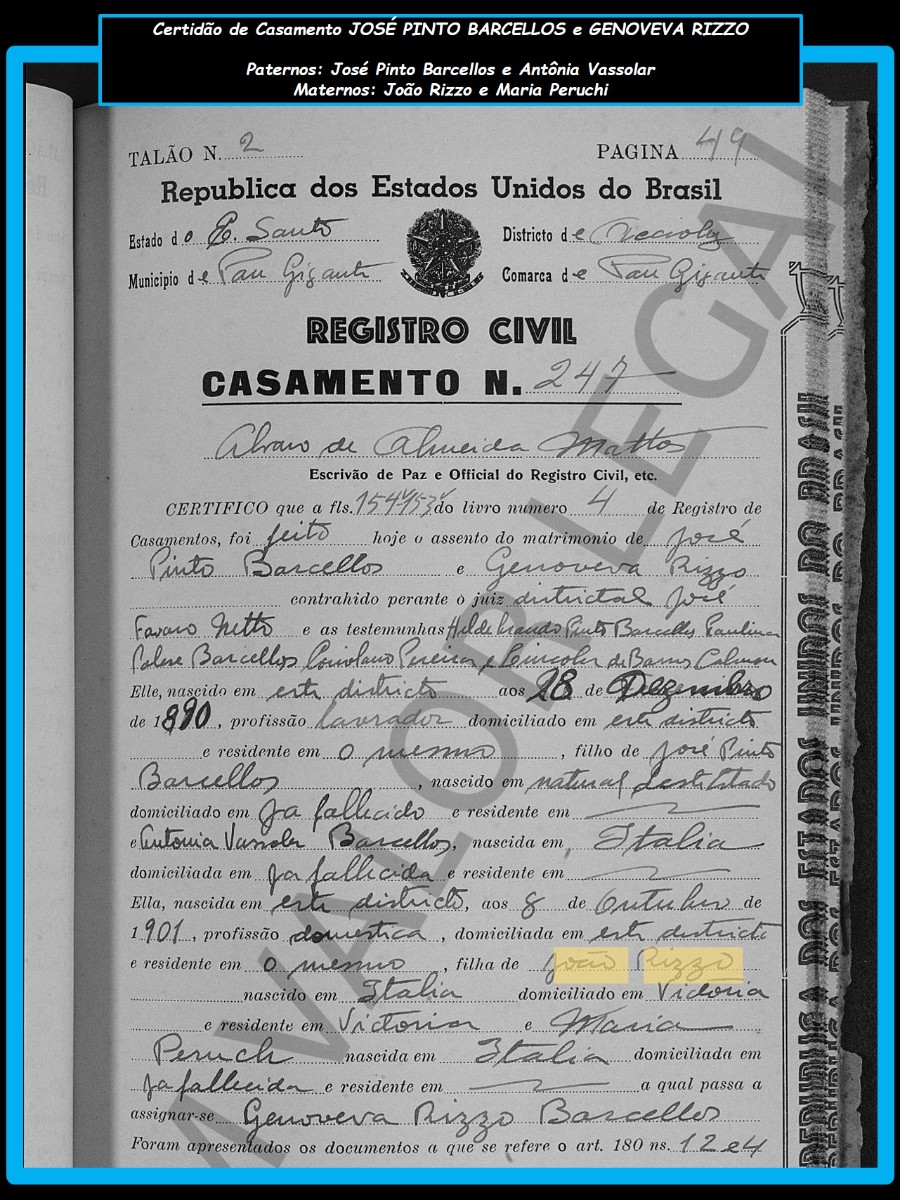 Certidão de Casamento JOSÉ PINTO BARCELLOS e GENOVEVA RIZZO
Paternos: José Pinto Barcellos e Antônia Vassolar
Maternos: João Rizzo e Maria Peruchi
TALÃO N. 2 PAGINA 49
Republica dos Estados Unidos do Brasil
Estado do E. Santo Districto de Accioly
Municipio de Pau Gigante Comarca de Pau Gigante
REGISTRO CIVIL
CASAMENTO N. 247
Alvaro de Almeida Mattos
Escrivão de Paz e Official do Registro Civil, etc.
CERTIFICO que a fls. do livro numero 4 de Registro de
Casamentos, foi feito hoje o assento do matrimonio de José
Pinto Barcellos e Genoveva Rizzo
contrahido perante o juiz districtal José
Favaro Netto e as testemunhas Hildebrando Pinto Barcellos Paulina
Barcellos, Pereira e Lincoln de Barros
Elle, nascido em este districto aos 28 de Dezembro
de 1890, profissão lavrador domiciliado em este districto
e residente em o mesmo, filho de José Pinto
Barcellos, nascido em natural deste Estado
domiciliado em ja fallecido e residente em
e Antonia Vassoler Barcellos, nascida em, Italia
domiciliada em ja fallecida e residente em
Ella, nascida em este districto, aos 8 de Outubro de
1901, profissão domestica, domiciliada em este districto
e residente em o mesmo, filha de João Rizzo
nascido em Italia domiciliado em Victoria
e residente em Victoria e Maria
Peruch nascida em Italia domiciliada em
ja fallecida e residente em a qual passa a
assignar-se Genoveva Rizzo Barcellos
Foram apresentados os documentos a que se refere o art. 180 ns. 1 2 e 4
VALOR LEGAL
REPUBLICA DOS ESTADOS UNIDOS DO BRASIL